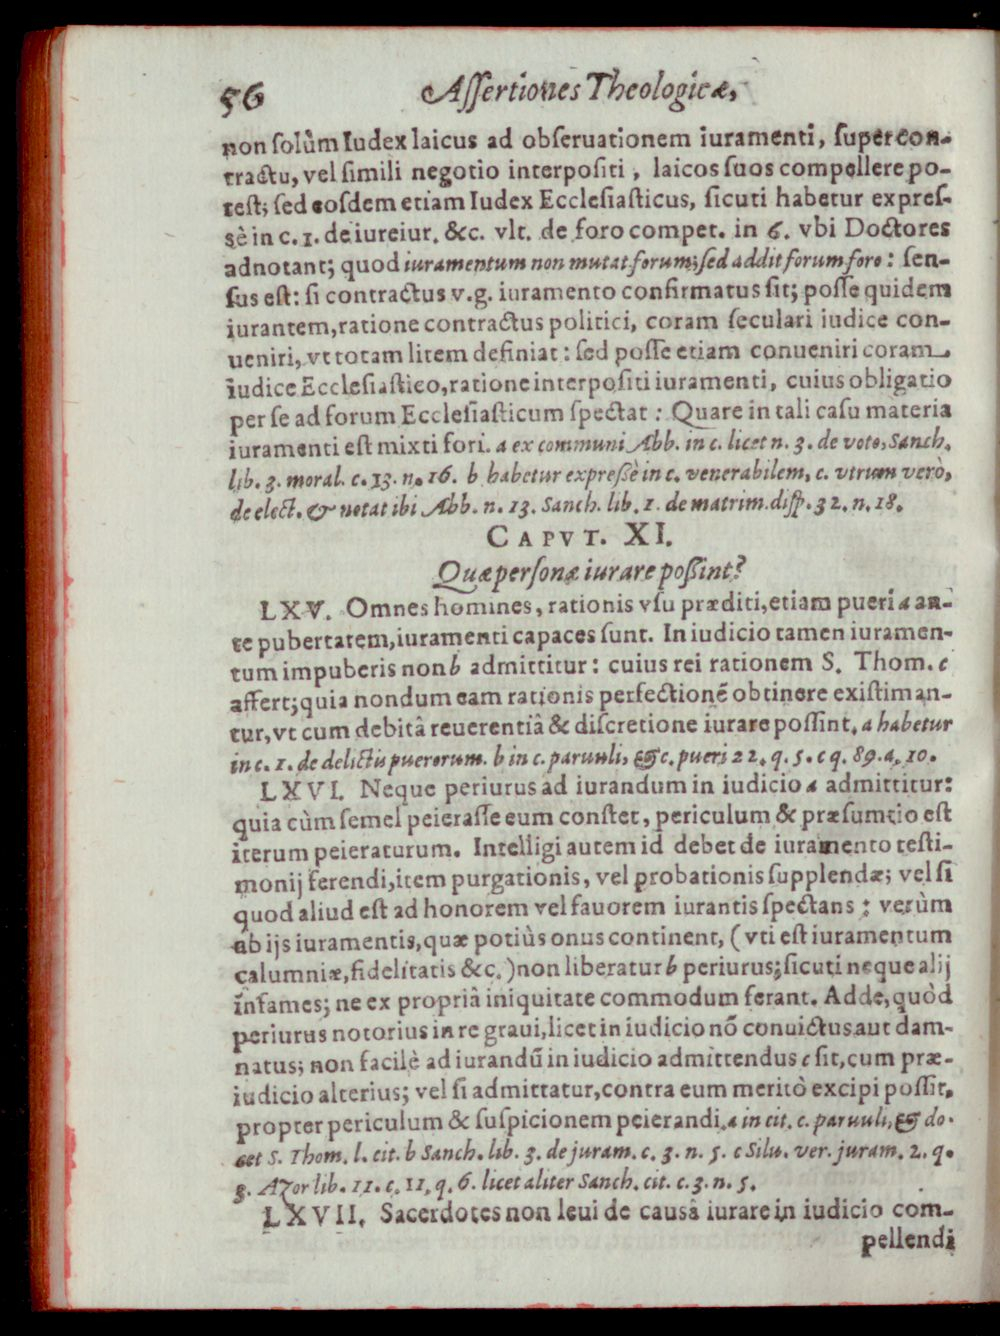 56 Aſſertiones Theologicæ,
non ſolùm Iudex laicus ad obſeruationem iuramenti, ſuper con-
tractu, vel ſimili negotio interpoſiti, laicos ſuos compellere po-
teſt; ſed eoſdem etiam Iudex Eccleſiaſticus, ſicuti habetur expreſ-
sè in c. 1. de iureiur. &c. vlt. de foro compet. in 6. vbi Doctores
adnotant; quod iuramentum non mutat forum; ſed addit forum foro: ſen-
ſus eſt: ſi contractus v.g. iuramento confirmatus ſit; poſſe quidem
iurantem, ratione contractus politici, coram ſeculari iudice con-
ueniri, vt totam litem definiat: ſed poſſe etiam conueniri coram
iudice Eccleſiaſtico, ratione interpoſiti iuramenti, cuius obligatio
per ſe ad forum Eccleſiaſticum ſpectat: Quare in tali caſu materia
iuramenti eſt mixti fori. a ex communi Abb. in c. licet n. 3. de voto, Sanch.
lib. 3. moral. c. 13. n. 16. b habetur expreßè in c. venerabilem, c. vtrum verò,
de elect. & notat ibi Abb. n. 13. Sanch. lib. 1. de matrim. diſp. 32. n. 18.
CAPVT. XI.
Quæ perſonæ iurare poßint?
LXV. Omnes homines, rationis vſu præditi, etiam pueri a an-
te pubertatem, iuramenti capaces ſunt. In iudicio tamen iuramen-
tum impuberis non b admittitur: cuius rei rationem S. Thom. c
affert; quia nondum eam rationis perfectionē obtinere exiſtiman-
tur, vt cum debitâ reuerentiâ & diſcretione iurare poſſint. a habetur
in c. 1. de delictis puerorum. b in c. paruuli, & c. pueri 22. q. 5. c q. 89. a. 10.
LXVI. Neque periurus ad iurandum in iudicio a admittitur:
quia cùm ſemel peieraſſe eum conſtet, periculum & præſumtio eſt
iterum peieraturum. Intelligi autem id debet de iuramento teſti-
monij ferendi, item purgationis, vel probationis ſupplendæ; vel ſi
quod aliud eſt ad honorem vel fauorem iurantis ſpectans: verùm
ab ijs iuramentis, quæ potiùs onus continent, (vti eſt iuramentum
calumniæ, fidelitatis &c.) non liberatur b periurus; ſicuti neque alij
infames; ne ex propriâ iniquitate commodum ferant. Adde, quòd
periurus notorius in re graui, licet in iudicio nō conuictus aut dam-
natus; non facilè ad iurandū in iudicio admittendus c ſit, cum præ-
iudicio alterius; vel ſi admittatur, contra eum meritò excipi poſſit,
propter periculum & ſuſpicionem peierandi. a in cit. c. paruuli, & do-
cet S. Thom. l. cit. b Sanch. lib. 3. de juram. c. 3. n. 5. c Silu. ver. juram. 2. q.
3. Azor lib. 11. c. 11. q. 6. licet aliter Sanch. cit. c. 3. n. 5.
LXVII. Sacerdotes non leui de causâ iurare in iudicio com-
pellendi